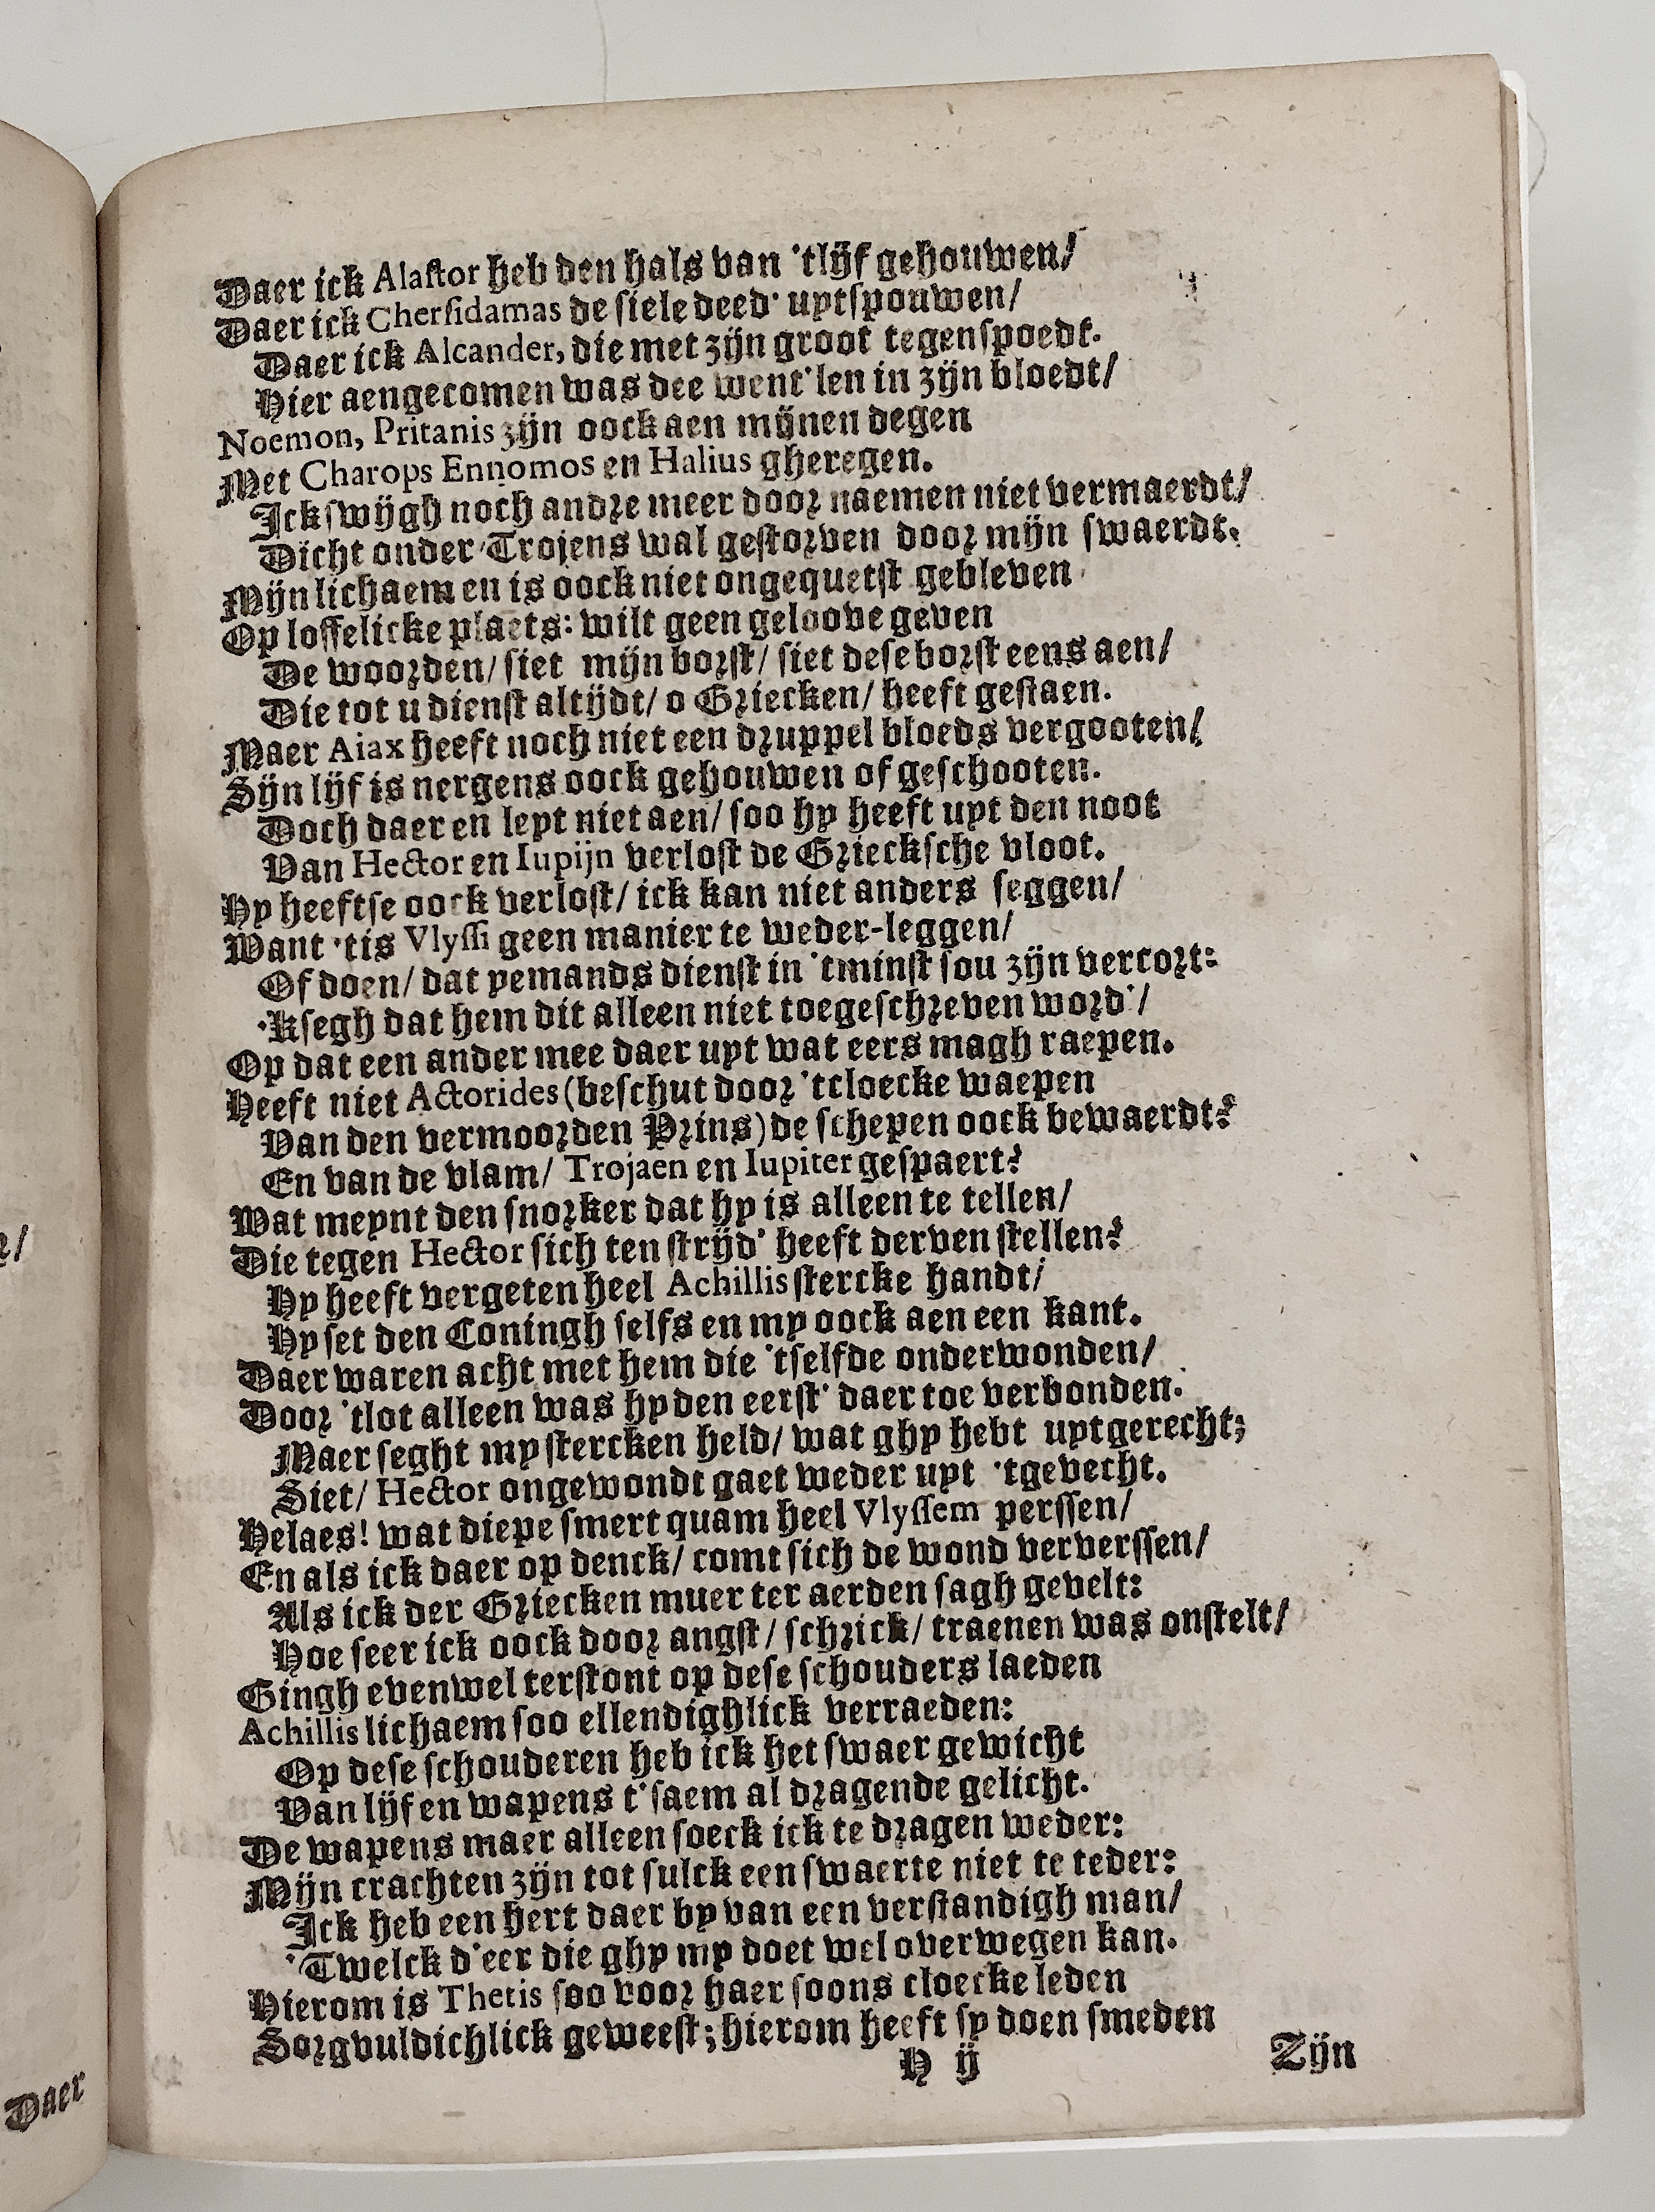 Daer ick Alastor heb den hals van 'tlijf gehouwen/
Daer ick Chersidamas de siele deed' uytspouwen/
Daer ick Alcander, die met zijn groot tegenspoedt.
Hier aengecomen was dee went'len in zijn bloedt/
Noemon, Pritanis zijn oock aen mijnen degen
Met Charops Ennomos en Halius gheregen.
Ick swijgh noch andre meer door naemen niet vermaerdt/
Dicht onder Trojens wal gestorven door mijn swaerdt.
Mijn lichaem en is oock niet ongequetst gebleven
Op loffelicke plaets: wilt geen geloove geven
De woorden/ siet mijn borst/ siet dese borst eens aen/
Die tot u dienst altijdt/ o Griecken/ heeft gestaen.
Maer Aiax heeft noch niet een druppel bloeds vergooten/
Sijn lijf is nergens oock gehouwen of geschooten.
Doch daer en leyt niet aen/ soo hy heeft uyt den noot
Van Hector en Iupijn verlost de Griecksche vloot.
Hy heeftse oock verlost/ ick kan niet anders seggen/
Want 'tis Vlyssi geen manier te weder-leggen/
Of doen/ dat yemands dienst in 'tminst sou zijn vercort:
'Ksegh dat hem dit alleen niet toegeschreven word'/
Op dat een ander mee daer uyt wat eers magh raepen.
Heeft niet Actorides (beschut door 'tcloecke waepen
Van den vermoorden Prins) de schepen oock bewaerdt?
En van de vlam/ Trojaen en Iupiter gespaert?
Wat meynt den snorker dat hy is alleen te tellen/
Die tegen Hector sich ten strijd' heeft derven stellen?
Hy heeft vergeten heel Achillis stercke handt/
Hy set den Coningh selfs en my oock aen een kant.
Daer waren acht met hem die 'tselfde onderwonden/
Door 'tlot alleen was hy den eerst' daer toe verbonden.
Maer seght my stercken held/ wat ghy hebt uytgerecht;
Siet/ Hector ongewondt gaet weder uyt 'tgevecht.
Helaes! wat diepe smert quam heel Vlyssem perssen/
En als ick daer op denck/ comt sich de wond ververssen/
Als ick der Griecken muer ter aerden sagh gevelt:
Hoe seer ick oock door angst/ schrick/ traenen was onstelt/
Gingh evenwel terstont op dese schouders laeden
Achillis lichaem soo ellendighlick verraeden:
Op dese schouderen heb ick het swaer gewicht
Van lijf en wapens t'saem al dragende gelicht.
De wapens maer alleen soeck ick te dragen weder:
Mijn crachten zijn tot sulck een swaerte niet te teder:
Ick heb een hert daer by van een verstandigh man/
'Twelck d'eer die ghy my doet wel overwegen kan.
Hierom is Thetis soo voor haer soons cloecke leden
Sorgvuldichlick geweest; hierom heeft sy doen smeden
H ij
Zijn
Daer